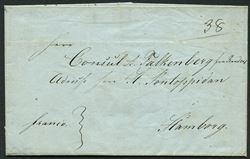 38
Herr
Consul A. Falkenberg
Adresse Herr H. Pontoppidan
franco
Hamborg.